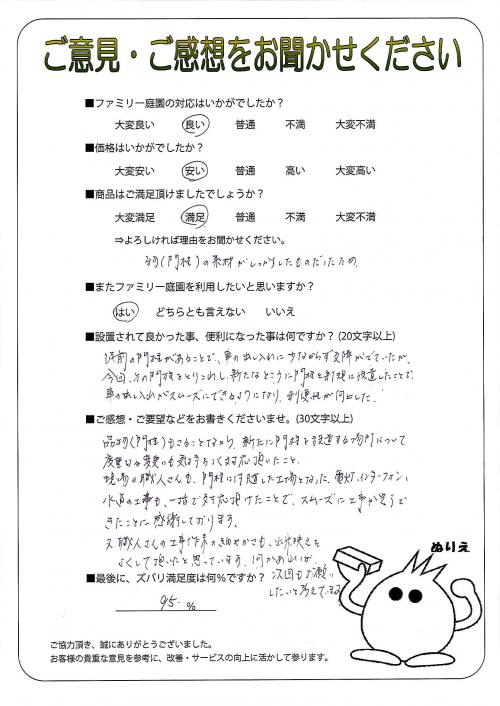 ご意見・ご感想をお聞かせください
■ファミリー庭園の対応はいかがでしたか？
大変良い 良い 普通 不満 大変不満
■価格はいかがでしたか？
大変安い 安い 普通 高い 大変高い
■商品はご満足頂けましたでしょうか？
大変満足 満足 普通 不満 大変不満
⇒よろしければ理由をお聞かせください。
物(門柱)の素材がしっかりしたものだったため.
■またファミリー庭園を利用したいと思いますか？
はい どちらとも言えない いいえ
■設置されて良かった事、便利になった事は何ですか？(20文字以上)
以前の門柱があることで、車の出し入れに少なからず支障がでていたが、
今回、その門柱をとりこわし、新たなところに門柱を新規に設置したことで、
車の出し入れがスムーズにできるようになり、利便性が向上した.
■ご感想・ご要望などをお書きくださいませ。(30文字以上)
品物(門柱)もさることながら、新たに門柱を設置する場所について
度重なる変更にも気持ちよく対応頂いたこと.
現場の職人さんも、門柱に付随した工事となった、電灯、インターフォン、
水道の工事も、一括で対応頂けたことで、スムーズに工事が完了で
きたことに感謝しております。
又、職人さんの工事作業の細やかさも、出来映えを
よくして頂いたと思っています. 何かあれば、
次回もお願い
したいと考えている
■最後に、ズバリ満足度は何％ですか？
95. ％
ぬりえ
ご協力頂き、誠にありがとうございました。
お客様の貴重な意見を参考に、改善・サービスの向上に活かして参ります。